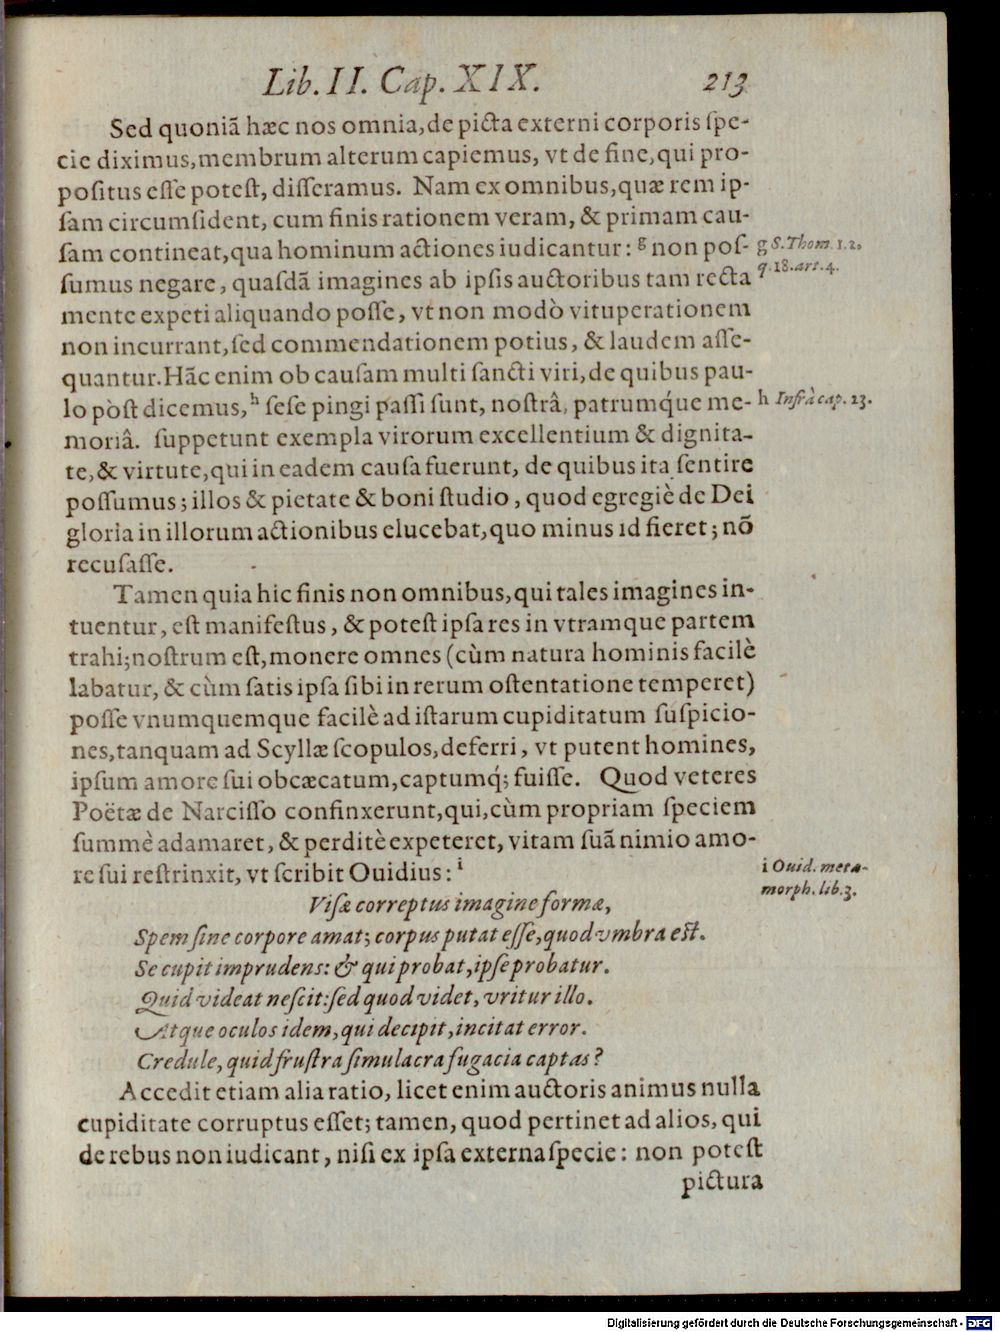 Lib. II. Cap. XIX. 213
Sed quoniã hæc nos omnia, de picta externi corporis ſpe-
cie diximus, membrum alterum capiemus, vt de fine, qui pro-
poſitus eſſe poteſt, diſſeramus. Nam ex omnibus, quæ rem ip-
ſam circumſident, cum finis rationem veram, & primam cau-
ſam contineat, qua hominum actiones iudicantur: g non poſ-
g S. Thom. 1. 2.
q. 18. art. 4.
ſumus negare, quaſdã imagines ab ipſis auctoribus tam recta
mente expeti aliquando poſſe, vt non modò vituperationem
non incurrant, ſed commendationem potius, & laudem aſſe-
quantur. Hãc enim ob cauſam multi ſancti viri, de quibus pau-
lo pòſt dicemus, h ſeſe pingi paſſi ſunt, noſtrâ, patrumq́ue me-
h Infrà cap. 23.
moriâ. ſuppetunt exempla virorum excellentium & dignita-
te, & virtute, qui in eadem cauſa fuerunt, de quibus ita ſentire
poſſumus; illos & pietate & boni ſtudio, quod egregiè de Dei
gloria in illorum actionibus elucebat, quo minus id fieret; nõ
recuſaſſe.
Tamen quia hic finis non omnibus, qui tales imagines in-
tuentur, eſt manifeſtus, & poteſt ipſa res in vtramque partem
trahi; noſtrum eſt, monere omnes (cùm natura hominis facilè
labatur, & cùm ſatis ipſa ſibi in rerum oſtentatione temperet)
poſſe vnumquemque facilè ad iſtarum cupiditatum ſuſpicio-
nes, tanquam ad Scyllæ ſcopulos, deferri, vt putent homines,
ipſum amore ſui obcæcatum, captumq́; fuiſſe. Quod veteres
Poëtæ de Narciſſo confinxerunt, qui, cùm propriam ſpeciem
ſummè adamaret, & perditè expeteret, vitam ſuã nimio amo-
re ſui reſtrinxit, vt ſcribit Ouidius: i
i Ouid. meta-
morph. lib. 3.
Viſæ correptus imagine formæ,
Spem ſine corpore amat; corpus putat eſſe, quod vmbra eſt.
Se cupit imprudens: & qui probat, ipſe probatur.
Quid videat neſcit: ſed quod videt, vritur illo.
Atque oculos idem, qui decipit, incitat error.
Credule, quid fruſtra ſimulacra fugacia captas?
Accedit etiam alia ratio, licet enim auctoris animus nulla
cupiditate corruptus eſſet; tamen, quod pertinet ad alios, qui
de rebus non iudicant, niſi ex ipſa externa ſpecie: non poteſt
pictura
Digitalisierung gefördert durch die Deutsche Forschungsgemeinschaft - DFG